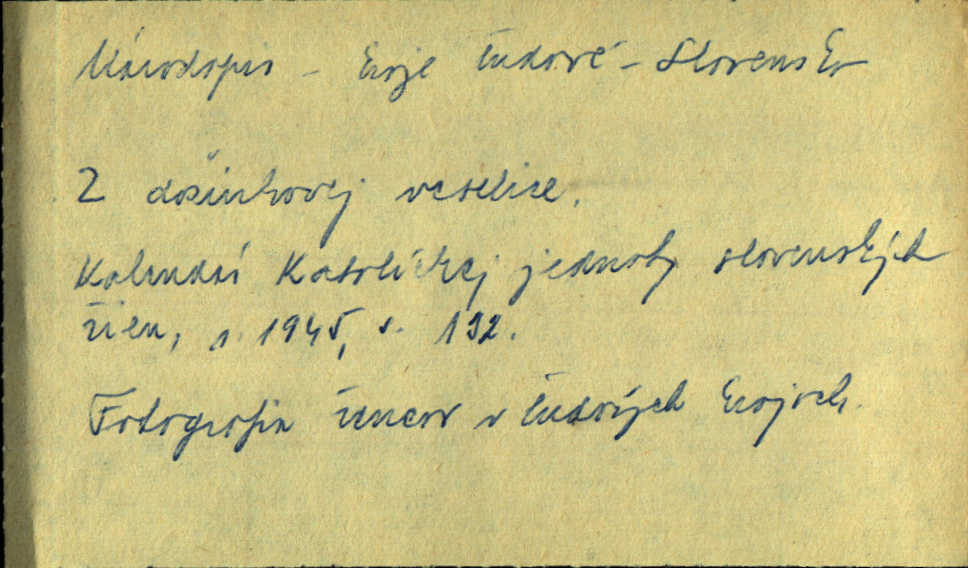 Národopis – kroje ľudové – Slovensko
Z dožinkovej veselice.
Kalendár Katolíckej jednoty slovenských
žien, r. 1945, s. 192.
Fotografia žencov v ľudových krojoch.